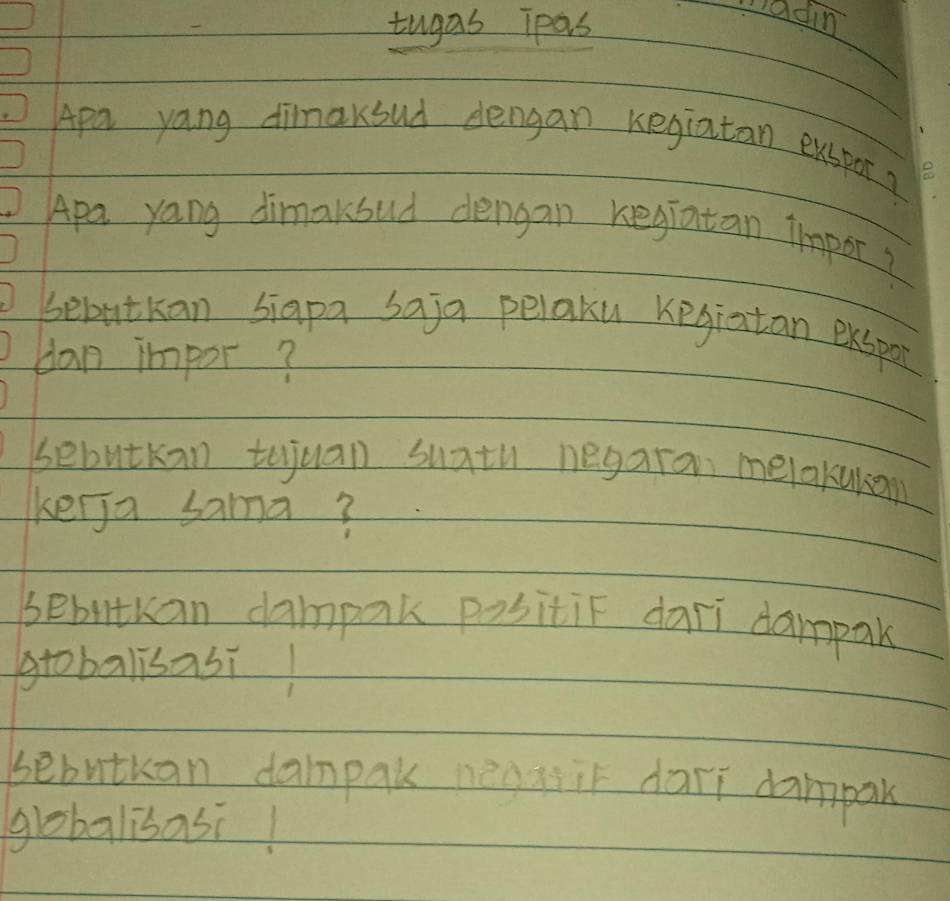 tugas ipas
Apa yang dimaksud dengan kegiatan ekspor?
Apa yang dimaksud dengan kegiatan impor?
sebutkan siapa saja pelaku kegiatan ekspor
dan impor?
sebutkan tujuan suatu negara melakukan
kerja sama?
sebutkan dampak positif dari dampak
globalisasi!
sebutkan dampak negatif dari dampak
globalisasi!